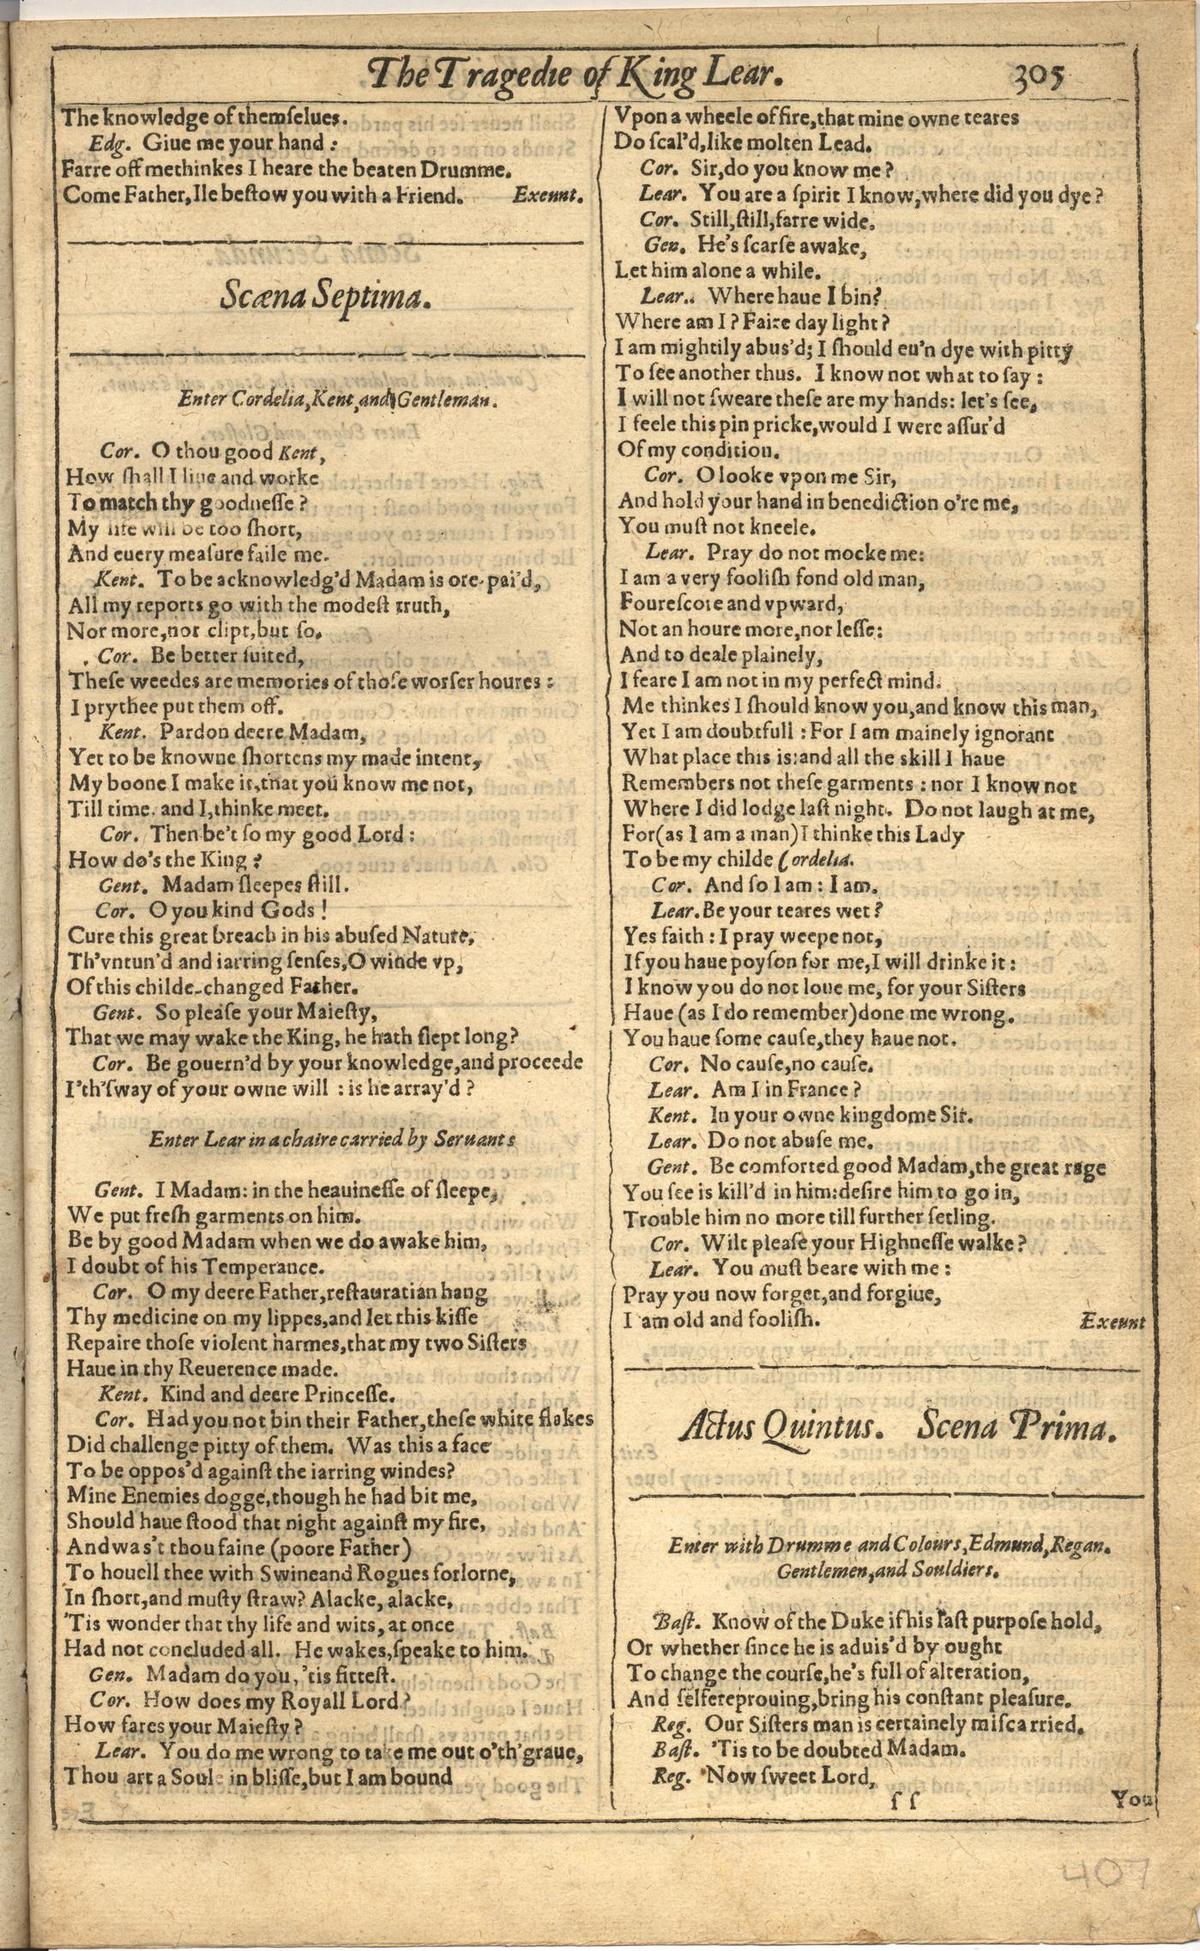 The Tragedie of King Lear. 305
The knowledge of themſelues.
Edg. Giue me your hand :
Farre off methinkes I heare the beaten Drumme.
Come Father, Ile beſtow you with a Friend. Exeunt.
Scæna Septima.
Enter Cordelia, Kent, and Gentleman.
Cor. O thou good Kent,
How ſhall I liue and worke
To match thy goodneſſe?
My life will be too ſhort,
And euery meaſure faile me.
Kent. To be acknowledg'd Madam is ore-pai'd,
All my reports go with the modeſt truth,
Nor more, nor clipt, but ſo.
Cor. Be better ſuited,
Theſe weedes are memories of thoſe worſer houres :
I prythee put them off.
Kent. Pardon deere Madam,
Yet to be knowne ſhortens my made intent,
My boone I make it, that you know me not,
Till time. and I, thinke meet.
Cor. Then be't ſo my good Lord :
How do's the King ?
Gent. Madam ſleepes ſtill.
Cor. O you kind Gods !
Cure this great breach in his abuſed Nature,
Th'vntun'd and iarring ſenſes, O winde vp,
Of this childe-changed Father.
Gent. So pleaſe your Maieſty,
That we may wake the King, he hath ſlept long?
Cor. Be gouern'd by your knowledge, and proceede
I'th'ſway of your owne will : is he array'd ?
Enter Lear in a chaire carried by Seruants
Gent. I Madam: in the heauineſſe of ſleepe,
We put freſh garments on him.
Be by good Madam when we do awake him,
I doubt of his Temperance.
Cor. O my deere Father, reſtauratian hang
Thy medicine on my lippes, and let this kiſſe
Repaire thoſe violent harmes, that my two Siſters
Haue in thy Reuerence made.
Kent. Kind and deere Princeſſe.
Cor. Had you not bin their Father, theſe white flakes
Did challenge pitty of them. Was this a face
To be oppos'd againſt the iarring windes?
Mine Enemies dogge, though he had bit me,
Should haue ſtood that night againſt my fire,
And was't thou faine (poore Father)
To houell thee with Swine and Rogues forlorne,
In ſhort, and muſty ſtraw? Alacke, alacke,
'Tis wonder that thy life and wits, at once
Had not concluded all. He wakes, ſpeake to him.
Gen. Madam do you, 'tis fitteſt.
Cor. How does my Royall Lord?
How fares your Maieſty?
Lear. You do me wrong to take me out o'th'graue,
Thou art a Soule in bliſſe, but I am bound
Vpon a wheele of fire, that mine owne teares
Do ſcal'd, like molten Lead.
Cor. Sir, do you know me?
Lear. You are a ſpirit I know, where did you dye?
Cor. Still, ſtill, farre wide.
Gen. He's ſcarſe awake,
Let him alone a while.
Lear. Where haue I bin?
Where am I? Faire day light?
I am mightily abus'd; I ſhould eu'n dye with pitty
To ſee another thus. I know not what to ſay :
I will not ſweare theſe are my hands: let's ſee,
I feele this pin pricke, would I were aſſur'd
Of my condition.
Cor. O looke vpon me Sir,
And hold your hand in benediction o're me,
You muſt not kneele.
Lear. Pray do not mocke me:
I am a very fooliſh fond old man,
Foureſcore and vpward,
Not an houre more, nor leſſe:
And to deale plainely,
I feare I am not in my perfect mind.
Me thinkes I ſhould know you, and know this man,
Yet I am doubtfull : For I am mainely ignorant
What place this is: and all the skill I haue
Remembers not theſe garments : nor I know not
Where I did lodge laſt night. Do not laugh at me,
For (as I am a man) I thinke this Lady
To be my childe Cordelia.
Cor. And ſo I am : I am.
Lear. Be your teares wet?
Yes faith : I pray weepe not,
If you haue poyſon for me, I will drinke it :
I know you do not loue me, for your Siſters
Haue (as I do remember) done me wrong.
You haue ſome cauſe, they haue not.
Cor. No cauſe, no cauſe.
Lear. Am I in France?
Kent. In your owne kingdome Sir.
Lear. Do not abuſe me.
Gent. Be comforted good Madam, the great rage
You ſee is kill'd in him: deſire him to go in,
Trouble him no more till further ſetling.
Cor. Wilt pleaſe your Highneſſe walke?
Lear. You muſt beare with me :
Pray you now forget, and forgiue,
I am old and fooliſh. Exeunt
Actus Quintus. Scena Prima.
Enter with Drumme and Colours, Edmund, Regan.
Gentlemen, and Souldiers.
Baſt. Know of the Duke if his laſt purpoſe hold,
Or whether ſince he is aduis'd by ought
To change the courſe, he's full of alteration,
And ſelfereprouing, bring his conſtant pleaſure.
Reg. Our Siſters man is certainely miſcarried.
Baſt. 'Tis to be doubted Madam.
Reg. Now ſweet Lord,
ſſ You
407